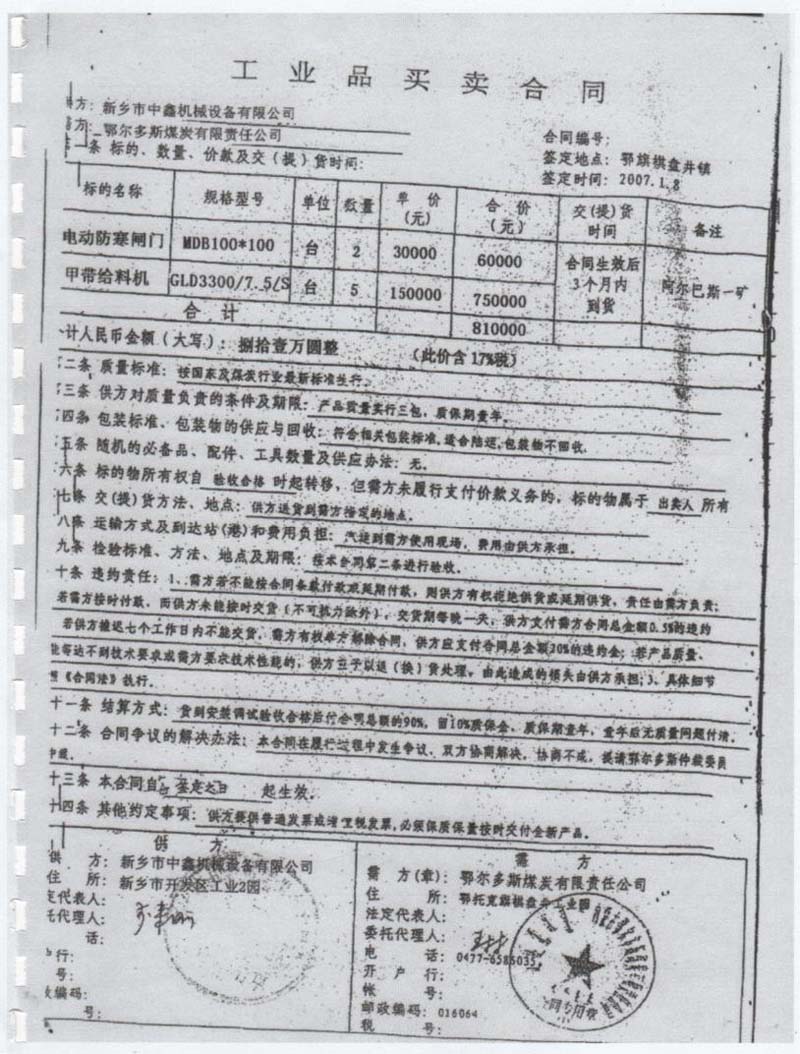 工业品买卖合同
供方：新乡市中鑫机械设备有限公司
需方：鄂尔多斯煤炭有限责任公司
合同编号：
一条 标的、数量、价款及交（提）货时间：
签定地点：鄂旗棋盘井镇
签定时间：2007.1.8
标的名称 规格型号 单位 数量 单价（元） 合价（元） 交(提)货时间 备注
电动防寒闸门 MDB100*100 台 2 30000 60000 合同生效后3个月内到货 阿尔巴斯一矿
甲带给料机 GLD3300/7.5/S 台 5 150000 750000
合计 810000
计人民币金额（大写）：捌拾壹万圆整 （此价含17%税）
二条 质量标准：按国家及煤炭行业最新标准执行。
三条 供方对质量负责的条件及期限：产品质量实行三包，质保期壹年。
四条 包装标准、包装物的供应与回收：符合相关包装标准，适合陆运，包装物不回收。
五条 随机的必备品、配件、工具数量及供应办法：无。
六条 标的物所有权自 验收合格 时起转移，但需方未履行支付价款义务的，标的物属于 出卖人 所有
七条 交(提)货方法、地点：供方送货到需方指定的地点。
八条 运输方式及到达站(港)和费用负担：汽运到需方使用现场，费用由供方承担。
九条 检验标准、方法、地点及期限：按本合同第二条进行验收。
十条 违约责任：1、需方若不能按合同条款付款或延期付款，则供方有权拒绝供货或延期供货，责任由需方负责；
若需方按时付款，而供方未能按时交货（不可抗力除外），交货期每晚一天，供方支付需方合同总金额0.5%的违约
若供方推迟七个工作日内不能交货，需方有权单方解除合同，供方应支付合同总金额20%的违约金；若产品质量、
能等达不到技术要求或需方要求技术性能的，供方立予以退（换）货处理，由此造成的损失由供方承担；3、具体细节
《合同法》执行。
十一条 结算方式：货到安装调试验收合格后付合同总额的90%，留10%质保金，质保期壹年，壹年后无质量问题付清。
十二条 合同争议的解决办法：本合同在履行过程中发生争议，双方协商解决，协商不成，提请鄂尔多斯仲裁委员
仲裁。
十三条 本合同自 签定之日 起生效。
十四条 其他约定事项：供方提供普通发票或增值税发票，必须保质保量按时交付全新产品。
供方
供方：新乡市中鑫机械设备有限公司
住所：新乡市开发区工业2园
定代表人：
托代理人：
话：
户行：
号：
政编码：
号：
需方
需方(章)：鄂尔多斯煤炭有限责任公司
住所：鄂托克旗棋盘井工业园
法定代表人：
委托代理人：
电话：0477-6586035
开户行：
帐号：
邮政编码：016064
税号：